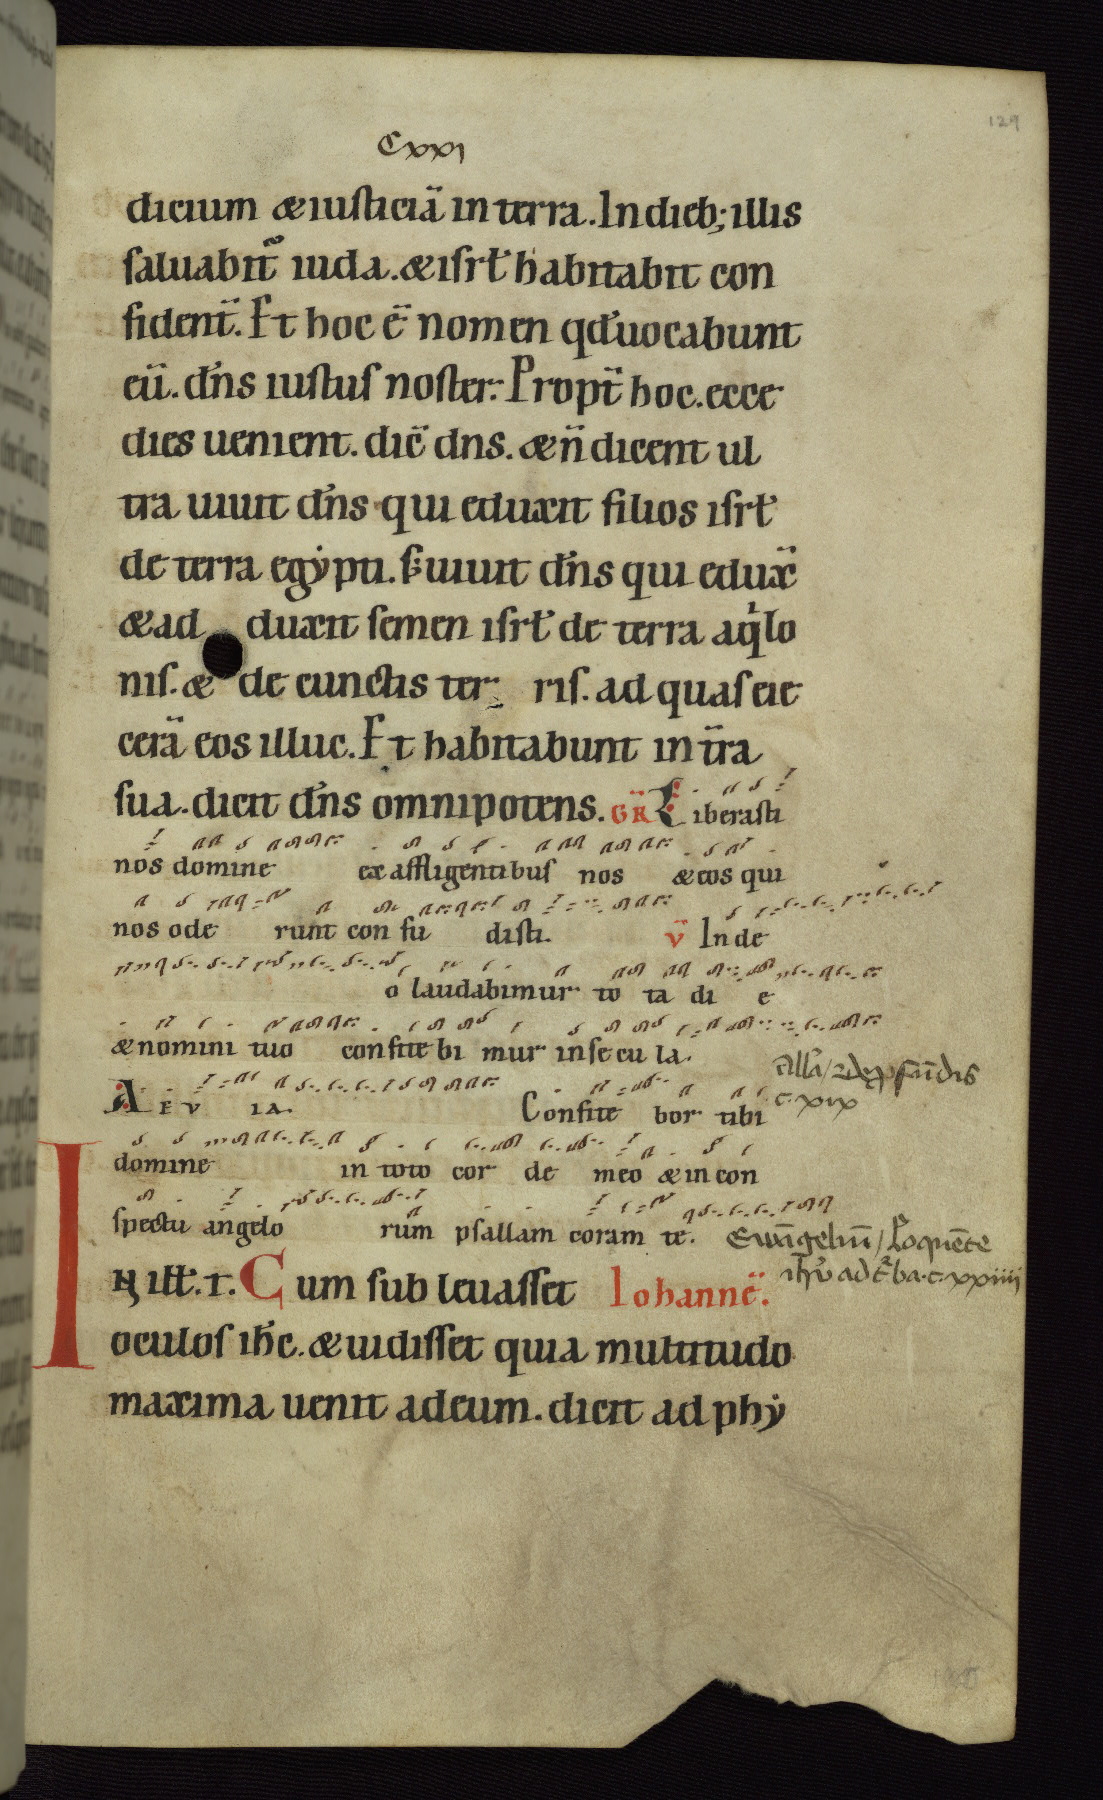 129
Cxxi
dicium & iusticiā in terra. In dieb; illis
saluabit᷑ iuda. & isrl̄ habitabit con
fident̄. Et hoc ē nomen qđ uocabunt
eū. dn̄s iustus noster. Propt̄ hoc. ecce
dies uenient. dic̄ dns. & n̄ dicent ul
tra uiuit dn̄s qui eduxit filios isrl̄
de terra egẏpti. s; uiuit dn̄s qui edux̄
& ad duxit semen isrl̄ de terra aqͥlo
nis. & de cunctis ter ris. ad quas eie
cerā eos illuc. Et habitabunt in t̄ra
sua. dicit dn̄s omnipotens. GR̄ Liberasti
nos domine ex affligentibus nos & eos qui
nos ode runt con fu disti. v̄ In de
o laudabimur to ta di e
& nomini tuo confite bi mur in se cu la.
A E V IA. Confite bor tibi
all̄a / De p̄fūdis
c. xix
domine in toto cor de meo & in con
spectu angelo rum psallam coram te.
Ewāngeliū / Loquēte
ih̄u ad t᷑ba. c xxiiii
IN ill̄. t. Cum sub leuasset Iohannē.
oculos ih̄c. & uidisset quia multitudo
maxima uenit ad eum. dicit ad phẏ